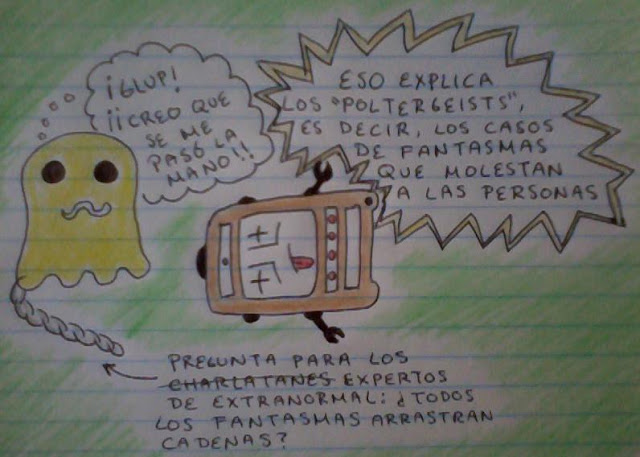 ¡GLUP!
¡¡CREO QUE
SE ME
PASÓ LA
MANO!!
ESO EXPLICA
LOS "POLTERGEISTS",
ES DECIR, LOS CASOS
DE FANTASMAS
QUE MOLESTAN
A LAS PERSONAS
PREGUNTA PARA LOS
CHARLATANES EXPERTOS
DE EXTRANORMAL: ¿TODOS
LOS FANTASMAS ARRASTRAN
CADENAS?